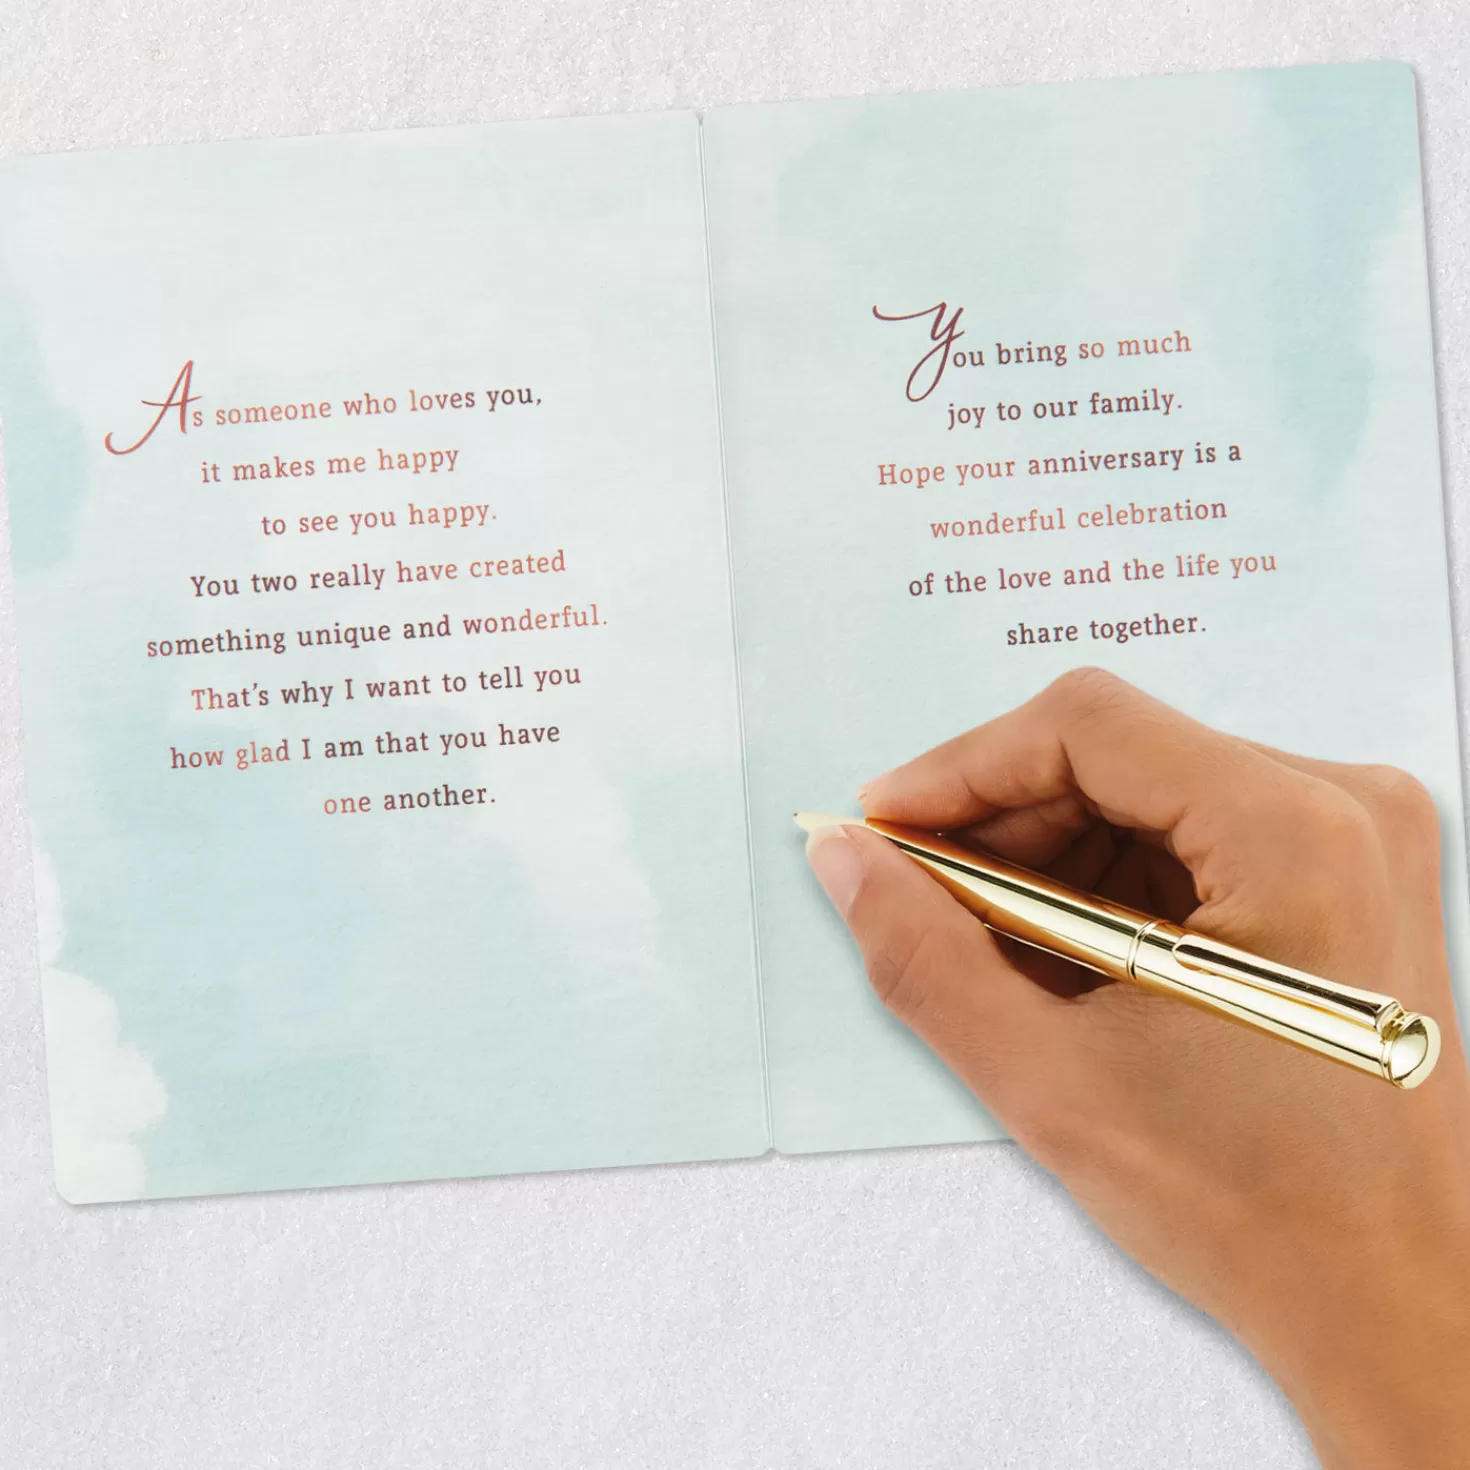 As someone who loves you,
it makes me happy
to see you happy.
You two really have created
something unique and wonderful.
That's why I want to tell you
how glad I am that you have
one another.
You bring so much
joy to our family.
Hope your anniversary is a
wonderful celebration
of the love and the life you
share together.